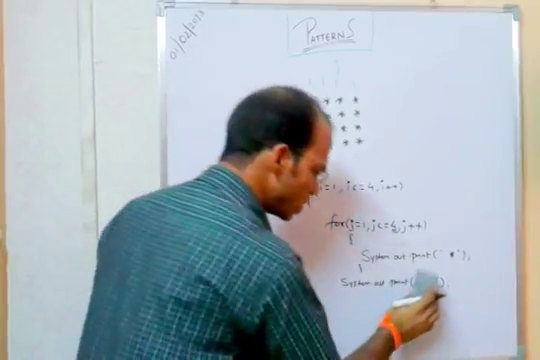 01/02/2023
PATTERNS
* * *
* * *
* * *
* * *
i=1, i<=4, i++)
for(j=1, j<=4, j++)
{
System out print(" * ");
}
System out print(